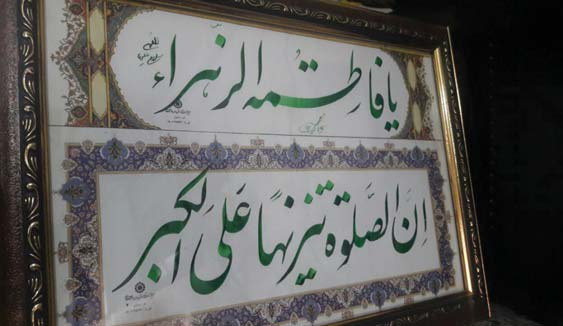 یا فاطمة الزهراء
ان الصلوة تنزیها علی الکبر